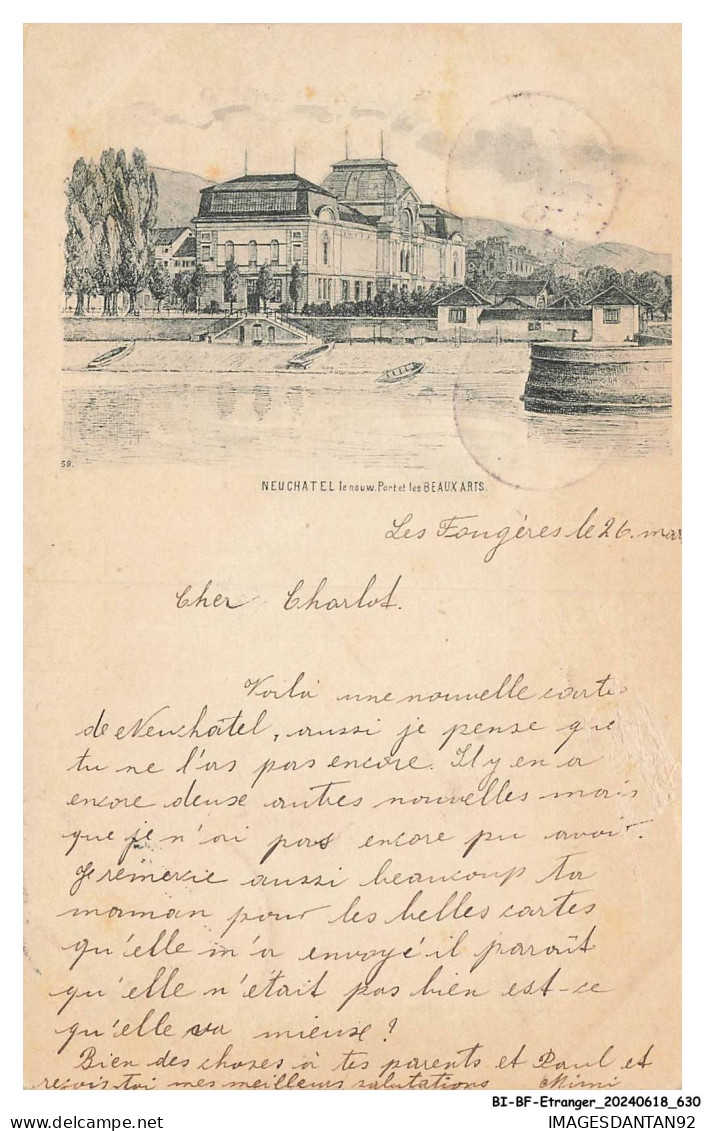 59.
NEUCHATEL le nouw. Port et les BEAUX ARTS.
Les Fougères le 26. mar
Cher Charlot.
Voilà une nouvelle carte
de Neuchâtel, aussi je pense que
tu ne l'as pas encore. Il y en a
encore deux autres nouvelles mais
que je n'ai pas encore pu avoir.
Je remercie aussi beaucoup ta
maman pour les belles cartes
qu'elle m'a envoyé il paraît
qu'elle n'était pas bien est-ce
qu'elle va mieux?
Bien des choses à tes parents et Paul et
reçois-toi mes meilleurs salutations Mimi
BI-BF-Etranger_20240618_630
IMAGESDANTAN92